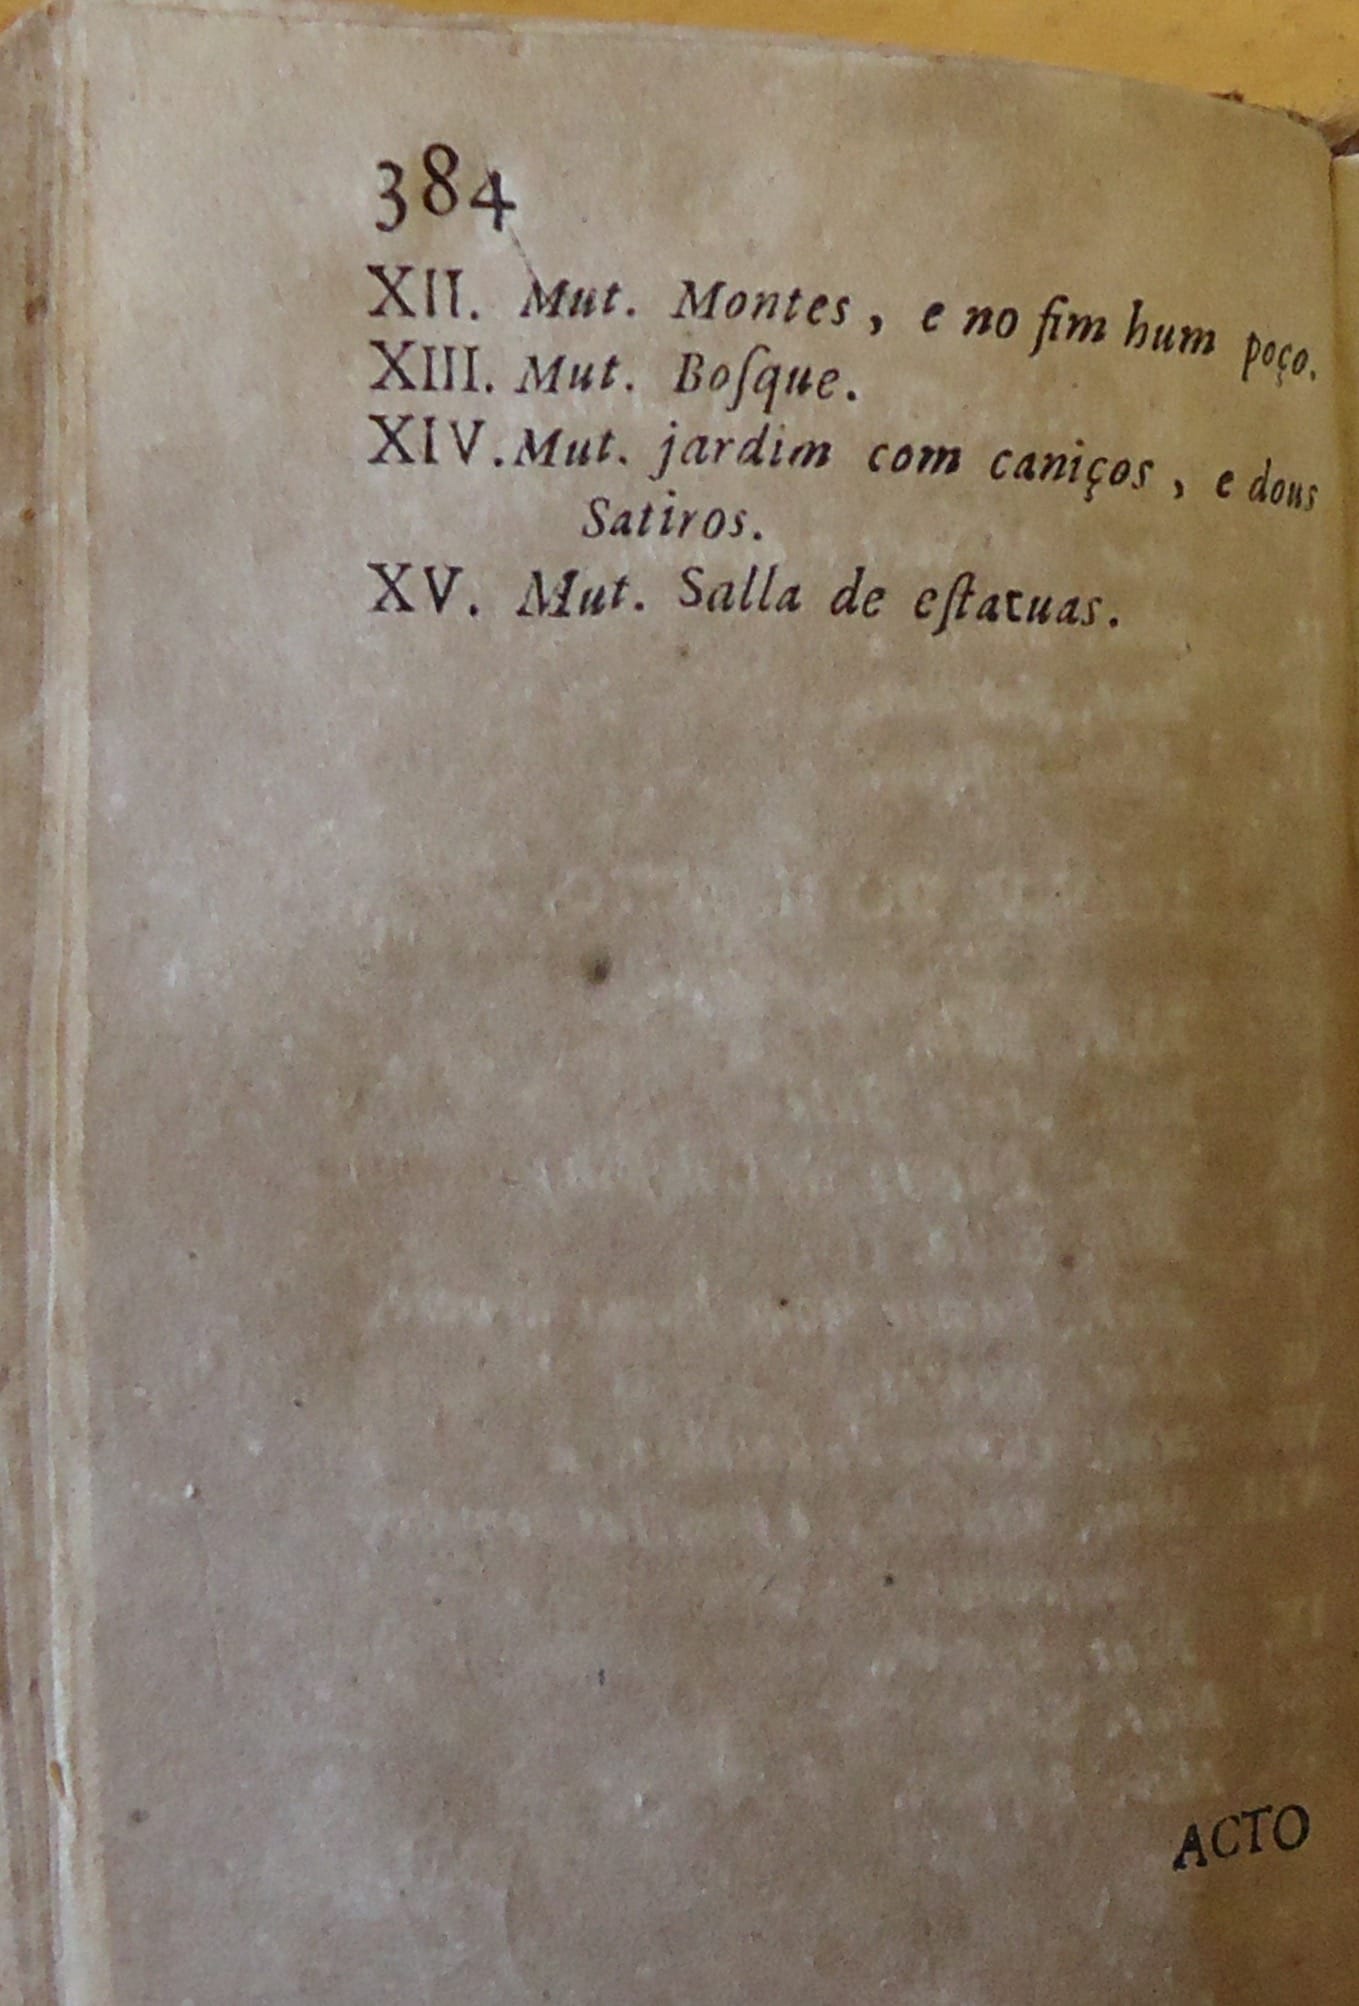 384
XII. Mut. Montes, e no fim hum poço.
XIII. Mut. Boſque.
XIV. Mut. jardim com caniços, e dous
Satiros.
XV. Mut. Salla de eſtatuas.
ACTO